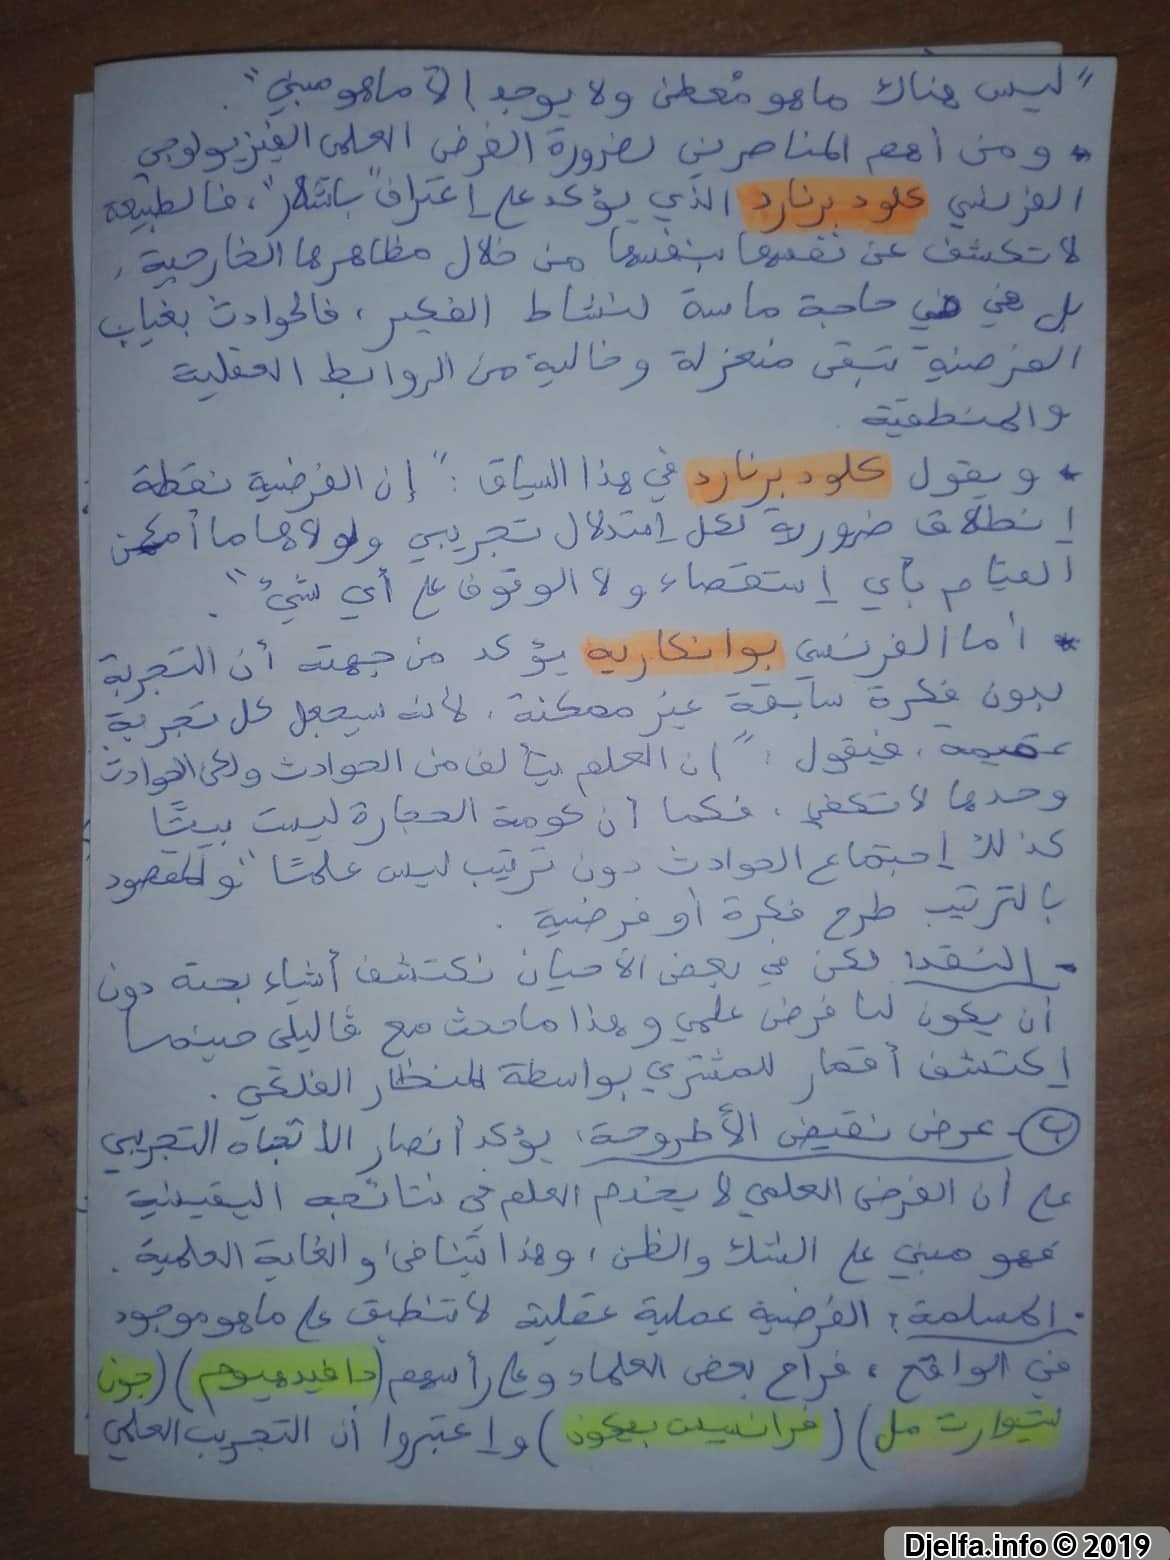 "ليس هناك ماهو مُعطى ولا يوجد إلا ماهو مبني".
* ومن أهم المناصرين لضرورة الفرض العلمي الفيزيولوجي
الفرنسي كلود برنارد الذي يؤكد على إعتراف "باشلار"، فالطبيعة
لا تكشف عن نفسها بنفسها من خلال مظاهرها الخارجية،
بل هي في حاجة ماسة لنشاط الفكر، فالحوادث بغياب
الفرضية تبقى منعزلة وخالية من الروابط العقلية
والمنطقية
* ويقول كلود برنارد في هذا السياق: "إن الفرضية نقطة
إنطلاق ضرورية لكل إستدلال تجريبي ولولاها ما أمكن
القيام بأي إستقصاء ولا الوقوف على أي شيئ".
* أما الفرنسي بوانكاريه يؤكد من جهته أن التجربة
بدون فكرة سابقة غير ممكنة، لأنه سيجعل كل تجربة
عقيمة، فيقول: "إن العلم يتألف من الحوادث ولكن الحوادث
وحدها لا تكفي، فكما أن كومة الحجارة ليست بيتًا
كذلك إجتماع الحوادث دون ترتيب ليس علمًا" والمقصود
بالترتيب طرح فكرة أو فرضية.
- النقد: لكن في بعض الأحيان نكتشف أشياء بحتة دون
أن يكون لنا فرض علمي وهذا ماحدث مع ڤاليلي حينما
إكتشف أقمار للمشتري بواسطة المنظار الفلكي.
ب- عرض نقيض الأطروحة: يؤكد أنصار الاتجاه التجريبي
على أن الفرض العلمي لا يخدم العلم في نتائجه اليقينية
فهو مبني على الشك والظن، وهذا يتنافى والغاية العلمية.
. المسلمة: الفرضية عملية عقلية لا تنطبق على ماهو موجود
في الواقع، فراح بعض العلماء وعلى رأسهم (دافيد هيوم) (جون
ستيوارت مل) (فرانسيس بيكون) وإعتبروا أن التجريب العلمي
Djelfa.info © 2019